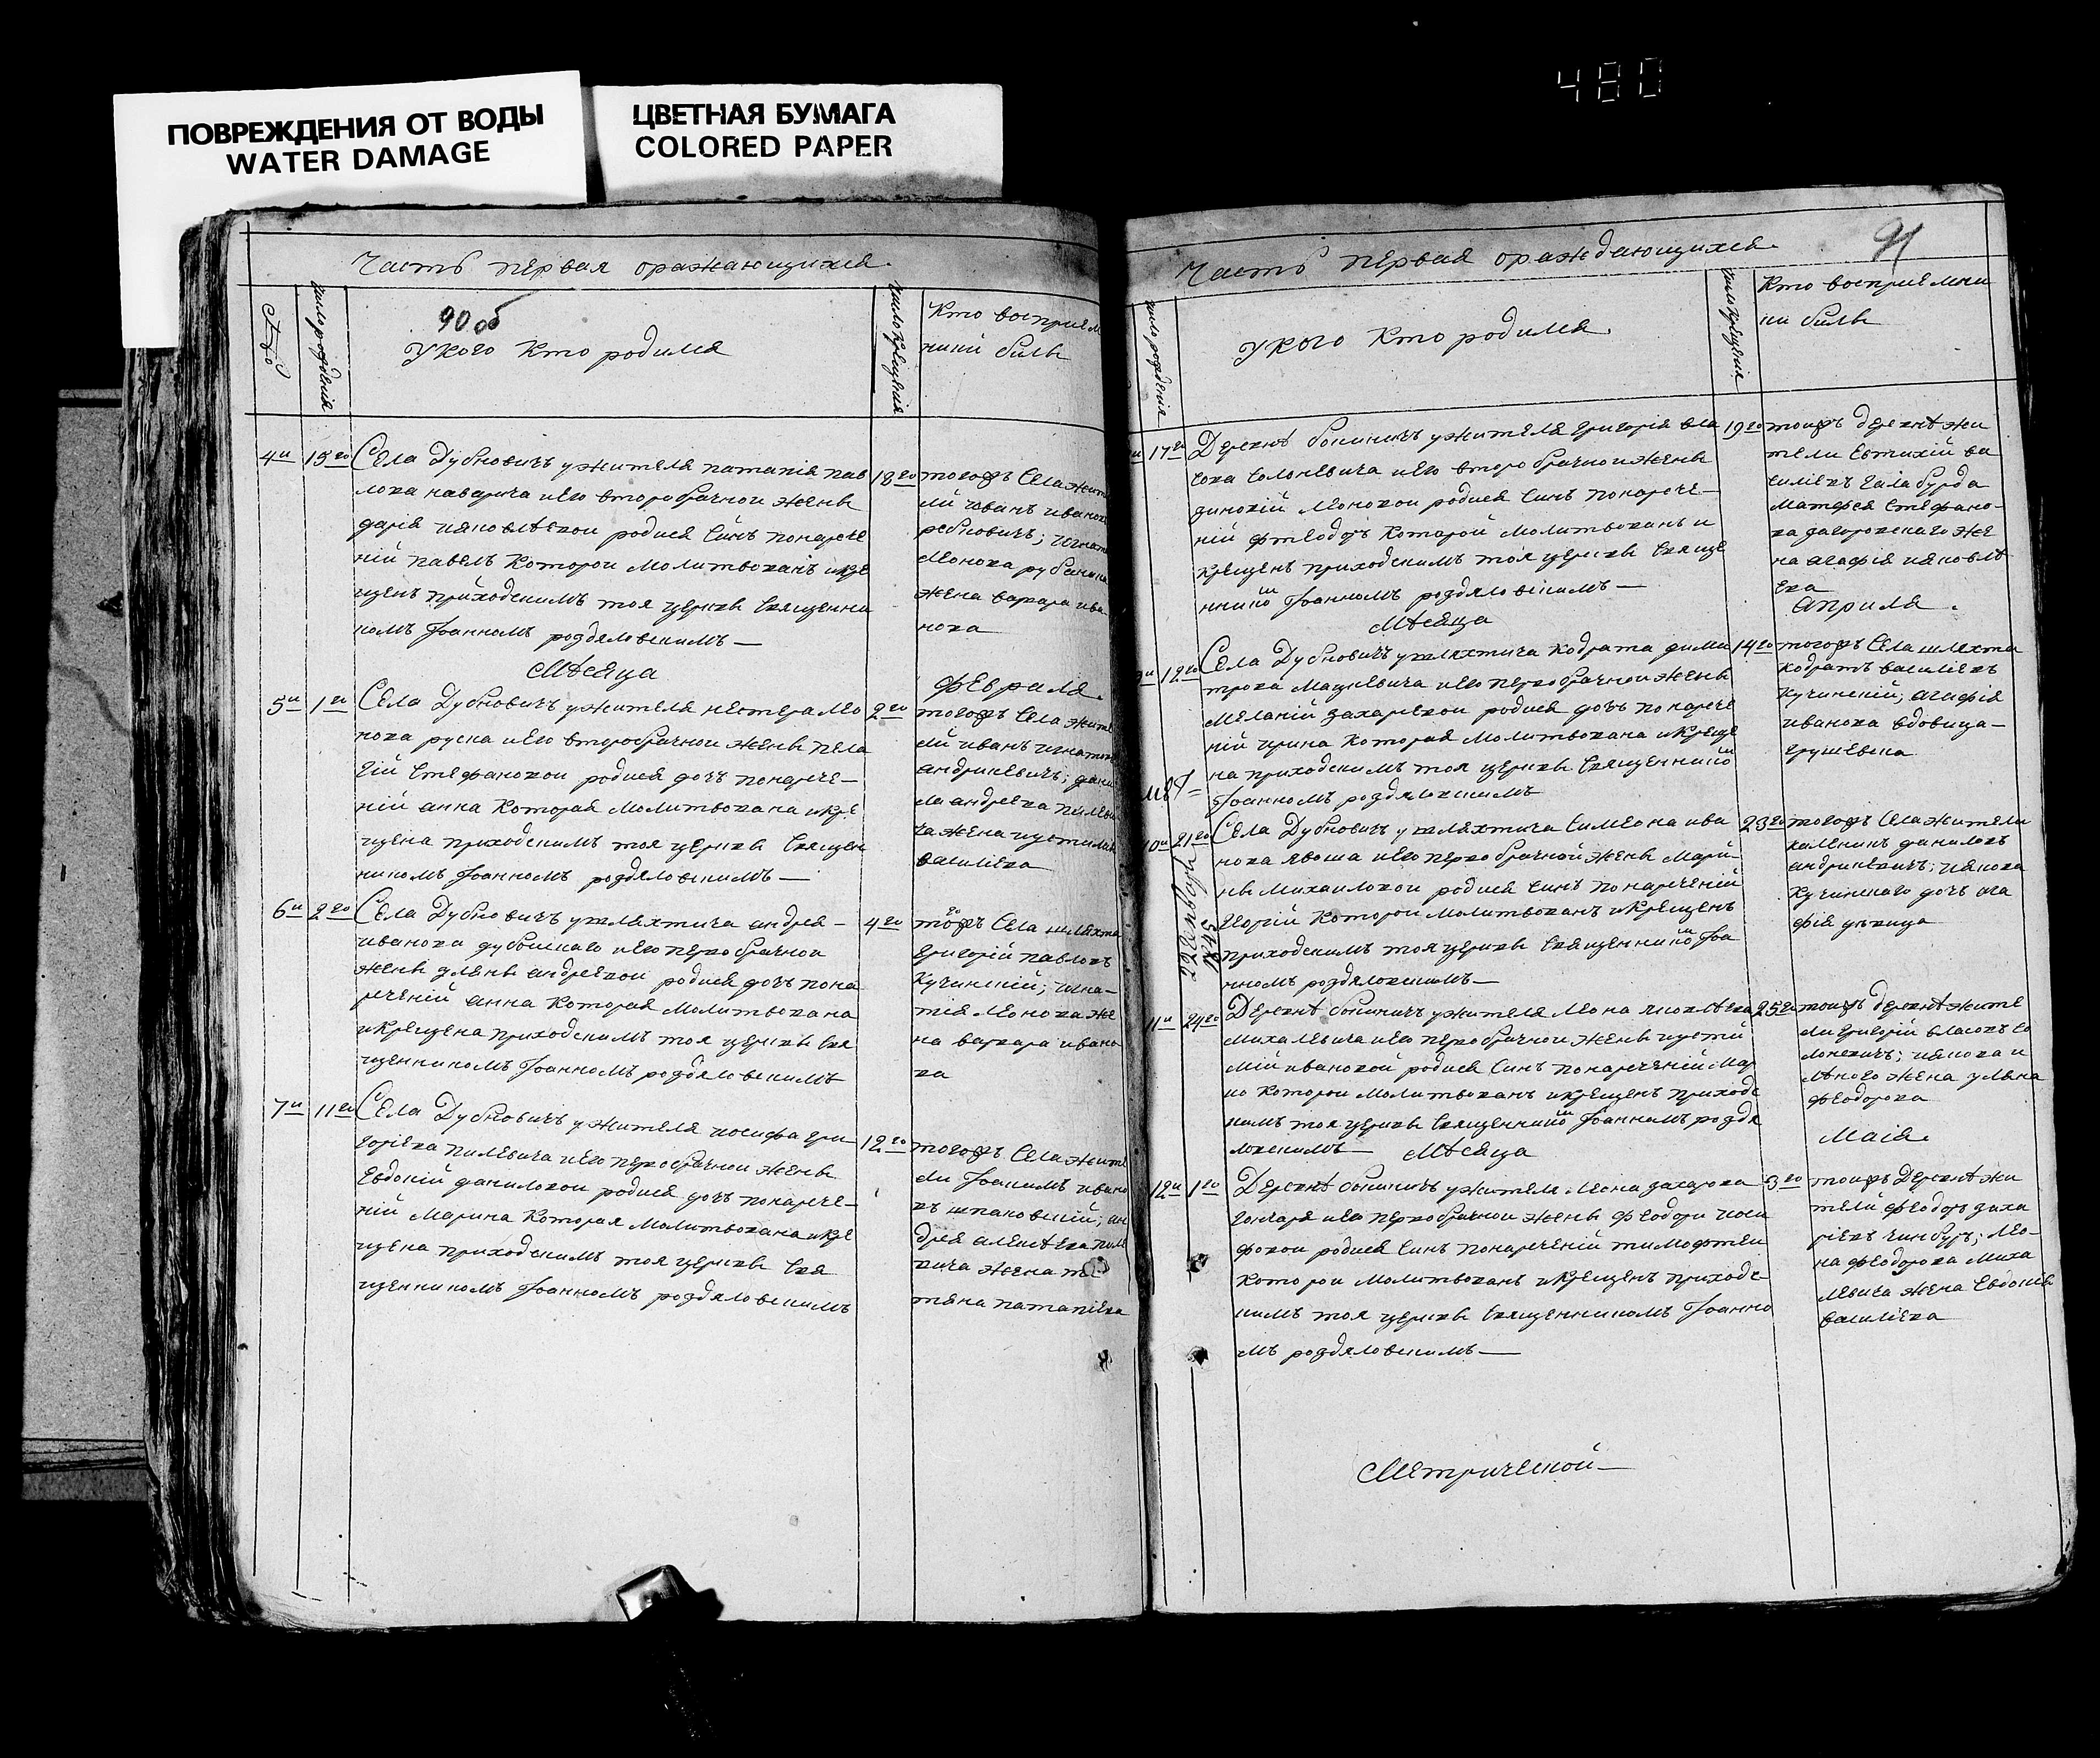 480
ПОВРЕЖДЕНИЯ ОТ ВОДЫ
WATER DAMAGE
ЦВЕТНАЯ БУМАГА
COLORED PAPER
Часть первая оражающихся
90 об
число рождения
У кого кто родился
число крещения
Кто восприем
ники били
4й
15го
Села Дубновичъ ужителя патапія пав
лова наварича иего второбрачной жены
дарія яковлѣвой родися Синъ понарече
ній павелъ Которои Молитвованъ икре
щенъ приходскимъ тоя церкви Священни
комъ Іоанномъ роздяловскимъ—
18го
тогожъ Села жит
ли иванъ иванов
ребковичъ; игнат
Леонова
жена варвара ива
нова
Мѣсяца
февраля
5й
1го
Села Дубновичъ ужителя нестера Лео
нова руска иего второбрачной жены пела
гій Стефановой родися дочъ понарече—
ній анна Которая Молитвована икре
щена приходскимъ тоя церкви Священ
никомъ Іоанномъ роздяловскимъ—
2го
тогожъ Села жите
ли иванъ игнатов
андрикевичъ; дани
ла андреева пилеви
ча жена иустина
василіева
6й
2го
Села Дубновичъ ушляхтича андрея—
иванова дубойскаго иего первобрачной
жены улены андреевой родися дочъ пона
реченій анна Которая Молитвована
икрещена приходскимъ тоя церкви Свя
щенникомъ Іоанномъ роздяловскимъ
4го
тогожъ Села шляхта
григорій павловъ
Кучинскій; игна—
тія Леонова же
на варвара ивано
ва
7й
11го
Села Дубновичъ ужителя иосифа гри—
горіева пилевича иего первобрачной жены
Евдокій даниловой родися дочъ понарече—
ній Марина Которая Молитвована икре
щена приходскимъ тоя церкви Свя
щенникомъ Іоанномъ роздяловскимъ
12го
тогожъ Села жите
ли Іоакимъ ивано
въ шпаковскій; ан
дрея алексѣева пиле
вича жена та
тяна патапіева
Часть первая ораждающихся
91
число рождения
У кого кто родился
число крещения
Кто восприемни
ки били
17го
Деревнѣ боничъ ужителя григорія вла
сова Солоневича иего второбрачной жены
Леоновой родися Синъ понарече—
ній фтеодоръ Которой Молитвованъ и
крещенъ приходскимъ тоя церкви Свяще
нникомъ Іоанномъ роздяловскимъ—
19го
тоижъ деревнѣ жи
тели Евтихій ва
силіевъ галабурда
Матфея Стефано—
ва загоровскаго же
на агафія яковлѣ
ева
Мѣсяца
априля
12го
Села Дубновичъ ушляхтича Кодрата дими
трова Мацкевича иего первобрачной жены
Меланій захаревой родися дочъ понарече
ній ирина Которая Молитвована икреще
на приходскимъ тоя церкви Священникомъ
Іоанномъ роздяловскимъ
14го
тогожъ Села шляхта
Кодратъ василіевъ
Кучинскій; агафія
иванова вдовица—
грушевска
10й
21го
Села Дубновичъ ушляхтича Симеона ива
нова явоша иего первобрачной жены Мари—
ны Михаиловой родися Синъ понареченій
георгій Которои Молитвованъ икрещенъ
приходскимъ тоя церкви Священникомъ Іоа
нномъ роздяловскимъ—
1845
23го
тогожъ Села жители
каленикъ даниловъ
андрикевичъ; якова
Кучинскаго дочъ ага
фія дѣвица
11й
24го
Деревнѣ боничъ ужителя Леона яковлѣва
Михалевича иего первобрачной жены
ивановой родися Синъ понареченій Мар
ко Которои Молитвованъ икрещенъ приходс
кимъ тоя церкви Священникомъ Іоанномъ роздя
ловскимъ—
25го
тоижъ деревнѣ жите
ли григорій власовъ Со
лоневичъ; якова
жена уляна
феодорова
Мѣсяца
Маія
12й
1го
Деревнѣ боничъ ужителя Леона захарова
гончара иего первобрачной жены феодори иоси
фовой родися Синъ понареченій тимофтеи
Которои Молитвованъ икрещенъ приходс
кимъ тоя церкви Священникомъ Іоанно
мъ роздяловскимъ—
3го
тоижъ Деревнѣ жи
тели феодоръ заха
ріевъ; Лео—
на феодорова Миха
левича жена Евдокія
василіева
Метрической—